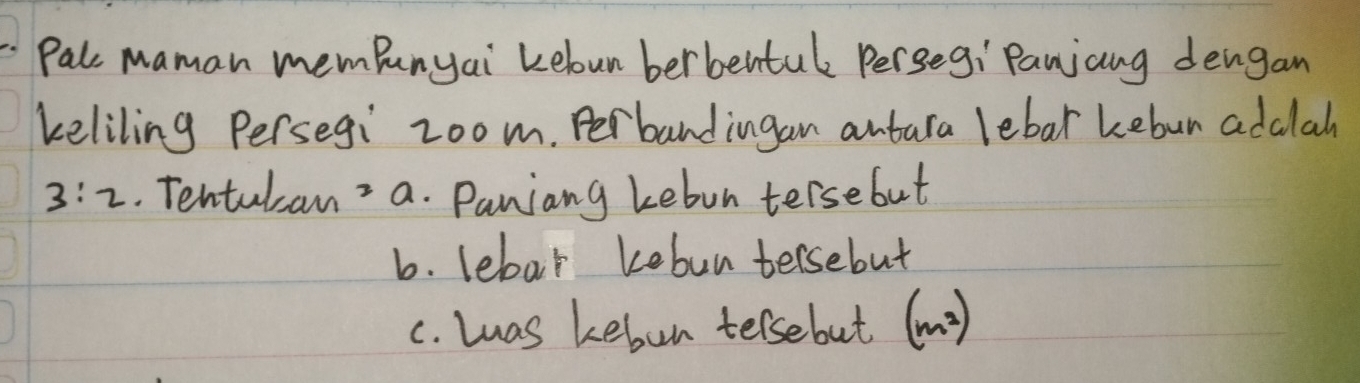 Pak Maman mempunyai kebun berbentuk Persegi Panjang dengan
keliling Persegi 200 m. Perbandingan antara lebar kebun adalah
3:2. Tentukan = a. Panjang kebun tersebut
b. lebar kebun tersebut
c. Luas kebun tersebut (m²)